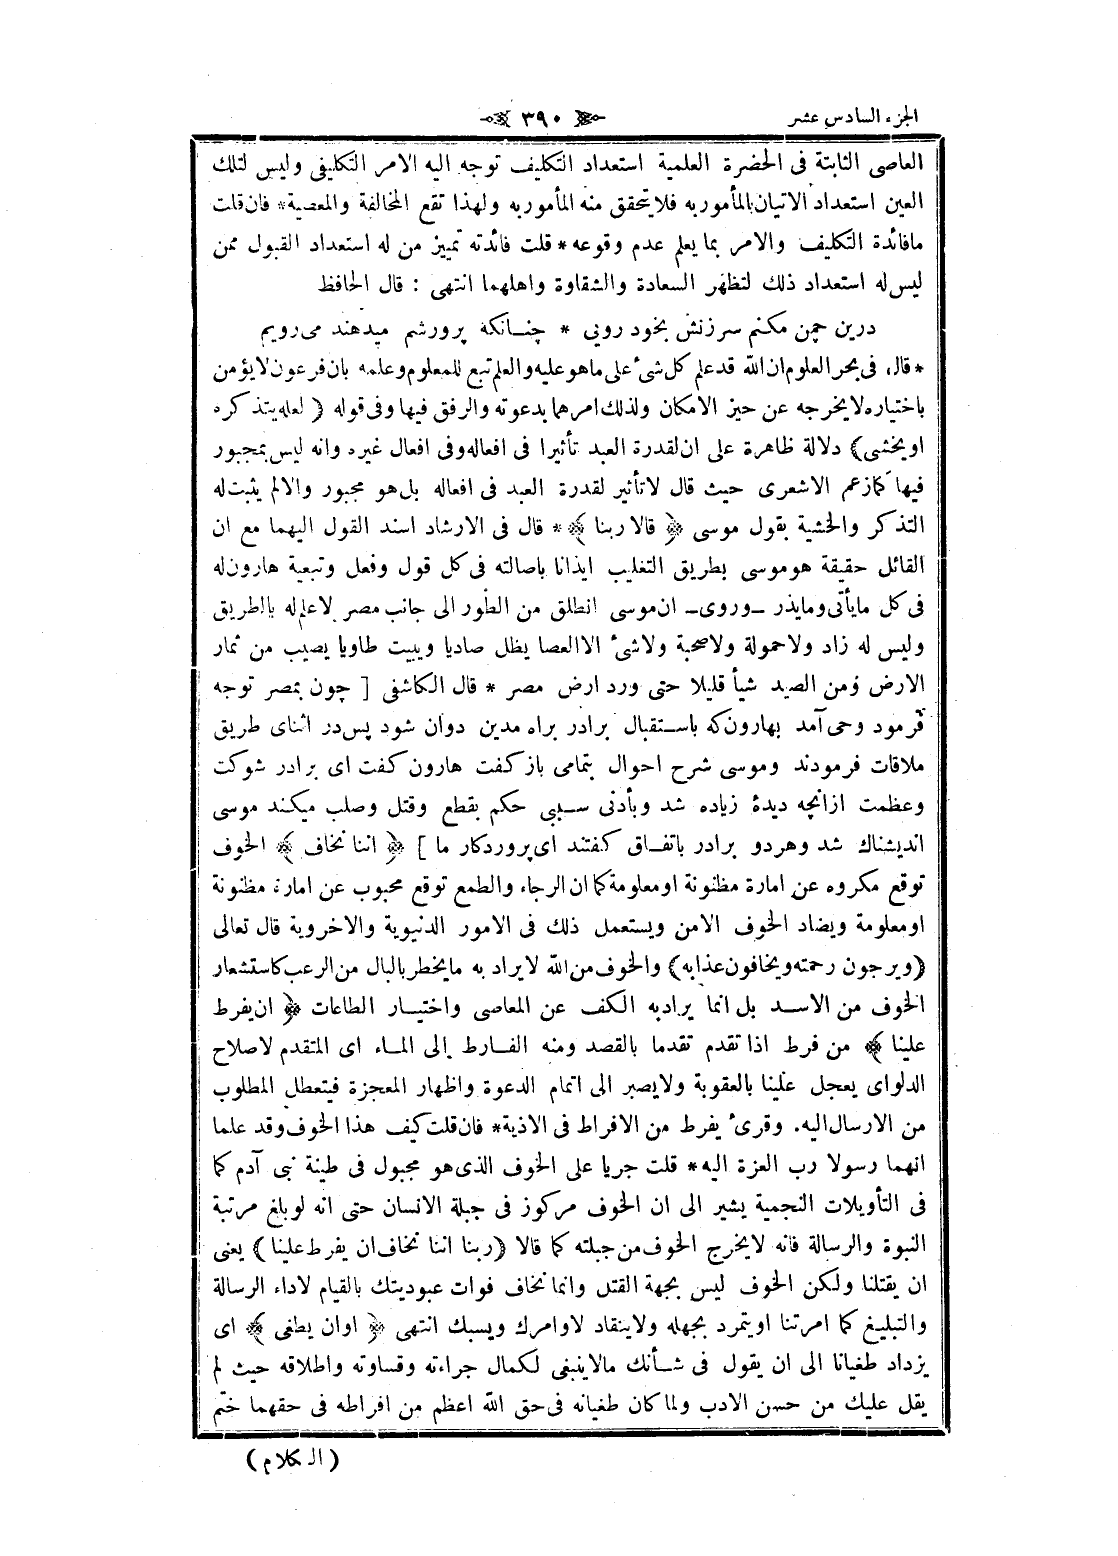 الجزء السادس عشر
٣٩٠
العاصى الثابتة فى الحضرة العلمية استعداد التكليف توجه اليه الامر التكليفى وليس لتلك
العين استعداد الاتيان بالمأموربه فلايتحقق منه المأموربه ولهذا تقع المخالفة والمعصية * فان قلت
مافائدة التكليف والامر بما يعلم عدم وقوعه * قلت فائدته تمييز من له استعداد القبول ممن
ليس له استعداد ذلك لتظهر السعادة والشقاوة واهلهما انتهى : قال الحافظ
درين چمن مكنم سرزنش بخود رويى * چنــانكه پرورشم ميدهند مى رويم
* قال فى بحر العلوم ان الله قدعلم كل شئ على ماهو عليه والعلم تبع للمعلوم وعلمه بان فرعون لايؤمن
باختياره لايخرجه عن حيز الامكان ولذلك امرهما بدعوته والرفق فيها وفى قوله ( لعله يتذكره
اويخشى) دلالة ظاهرة على ان لقدرة العبد تأثيرا فى افعاله وفى افعال غيره وانه ليس بمجبور
فيها كمازعم الاشعرى حيث قال لاتأثير لقدرة العبد فى افعاله بل هو مجبور والالم يثبت له
التذكر والخشية بقول موسى ﴿ قالا ربنا ﴾ * قال فى الارشاد اسند القول اليهما مع ان
القائل حقيقة هو موسى بطريق التغليب ايذانا باصالته فى كل قول وفعل وتبعية هارون له
فى كل مايأتى ومايذر ــ وروى ــ ان موسى انطلق من الطور الى جانب مصر لاعلم له بالطريق
وليس له زاد ولاحمولة ولاصحبة ولاشئ الاالعصا يظل صاديا ويبيت طاويا يصيب من ثمار
الارض ومن الصيد شيأ قليلا حتى ورد ارض مصر * قال الكاشفى [ چون بمصر توجه
فرمود وحى آمد بهارون كه باســتقبال برادر براه مدين دوان شود پس در اثناى طريق
ملاقات فرمودند وموسى شرح احوال بتمامى باز كفت هارون كفت اى برادر شوكت
وعظمت ازانچه ديدۀ زياده شد وبأدنى سـببى حكم بقطع وقتل وصلب ميكند موسى
انديشناك شد وهردو برادر باتفــاق كفتند اى پروردكار ما ] ﴿ اننا نخاف ﴾ الخوف
توقع مكروه عن امارة مظنونة اومعلومة كما ان الرجاء والطمع توقع محبوب عن امارة مظنونة
اومعلومة ويضاد الخوف الامن ويستعمل ذلك فى الامور الدنيوية والاخروية قال تعالى
(ويرجون رحمته ويخافون عذابه) والخوف من الله لايراد به مايخطر بالبال من الرعب كاستشعار
الخوف من الاســد بل انما يرادبه الكف عن المعاصى واختيـار الطاعات ﴿ ان يفرط
علينا ﴾ من فرط اذا تقدم تقدما بالقصد ومنه الفــارط إلى المـاء اى المتقدم لاصلاح
الدلو اى يعجل علينا بالعقوبة ولايصبر الى اتمام الدعوة واظهار المعجزة فيتعطل المطلوب
من الارسال اليه. وقرئ يفرط من الافراط فى الاذية * فان قلت كيف هذا الخوف وقد علما
انهما رسولا رب العزة اليه * قلت جريا على الخوف الذى هو مجبول فى طينة بنى آدم كما
فى التأويلات النجمية يشير الى ان الخوف مركوز فى جبلة الانسان حتى انه لوبلغ مرتبة
النبوة والرسالة فانه لايخرج الخوف من جبلته كما قالا (ربنا اننا نخاف ان يفرط علينا) يعنى
ان يقتلنا ولكن الخوف ليس بجهة القتل وانما نخاف فوات عبوديتك بالقيام لاداء الرسالة
والتبليغ كما امرتنا اويتمرد بجهله ولاينقاد لاوامرك ويسبك انتهى ﴿ اوان يطغى ﴾ اى
يزداد طغيانا الى ان يقول فى شــأنك مالاينبغى لكمال جراءته وقساوته واطلاقه حيث لم
يقل عليك من حسن الادب ولما كان طغيانه فى حق الله اعظم من افراطه فى حقهما ختم
( الكلام )